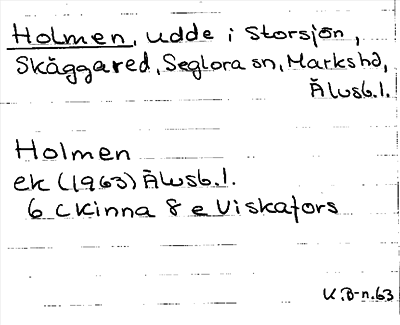 Holmen, udde i Storsjön,
Skäggared, Seglora sn, Marks hd,
Älvsb. l.
Holmen
ek (1963) Älvsb. l.
6 C Kinna 8 e Viskafors
K.B-n.63